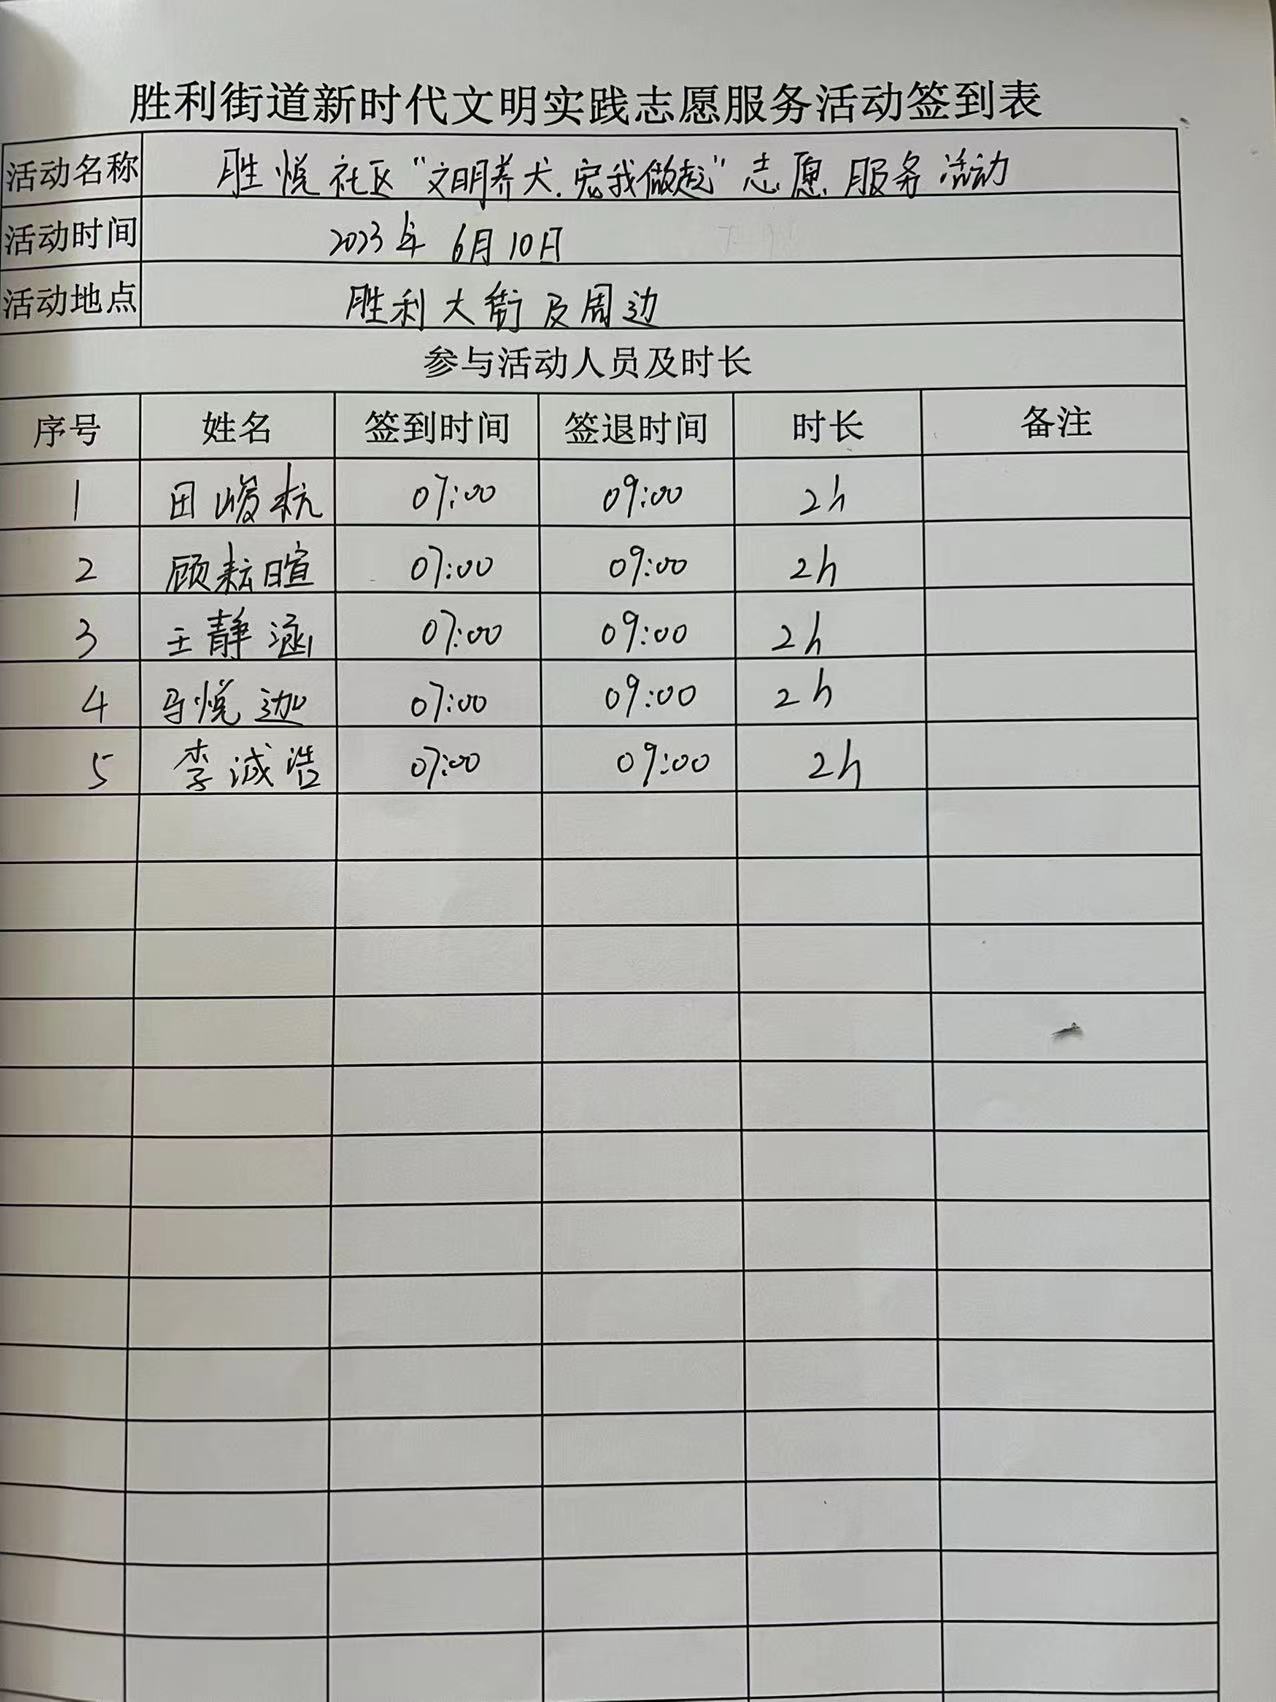 胜利街道新时代文明实践志愿服务活动签到表
活动名称 胜悦社区“文明养犬.宠我做起”志愿服务活动
活动时间 2023年6月10日
活动地点 胜利大街及周边
参与活动人员及时长
序号 姓名 签到时间 签退时间 时长 备注
1 田峻杭 07:00 09:00 2h
2 顾耘暄 07:00 09:00 2h
3 王静涵 07:00 09:00 2h
4 马悦迦 07:00 09:00 2h
5 李诚浩 07:00 09:00 2h